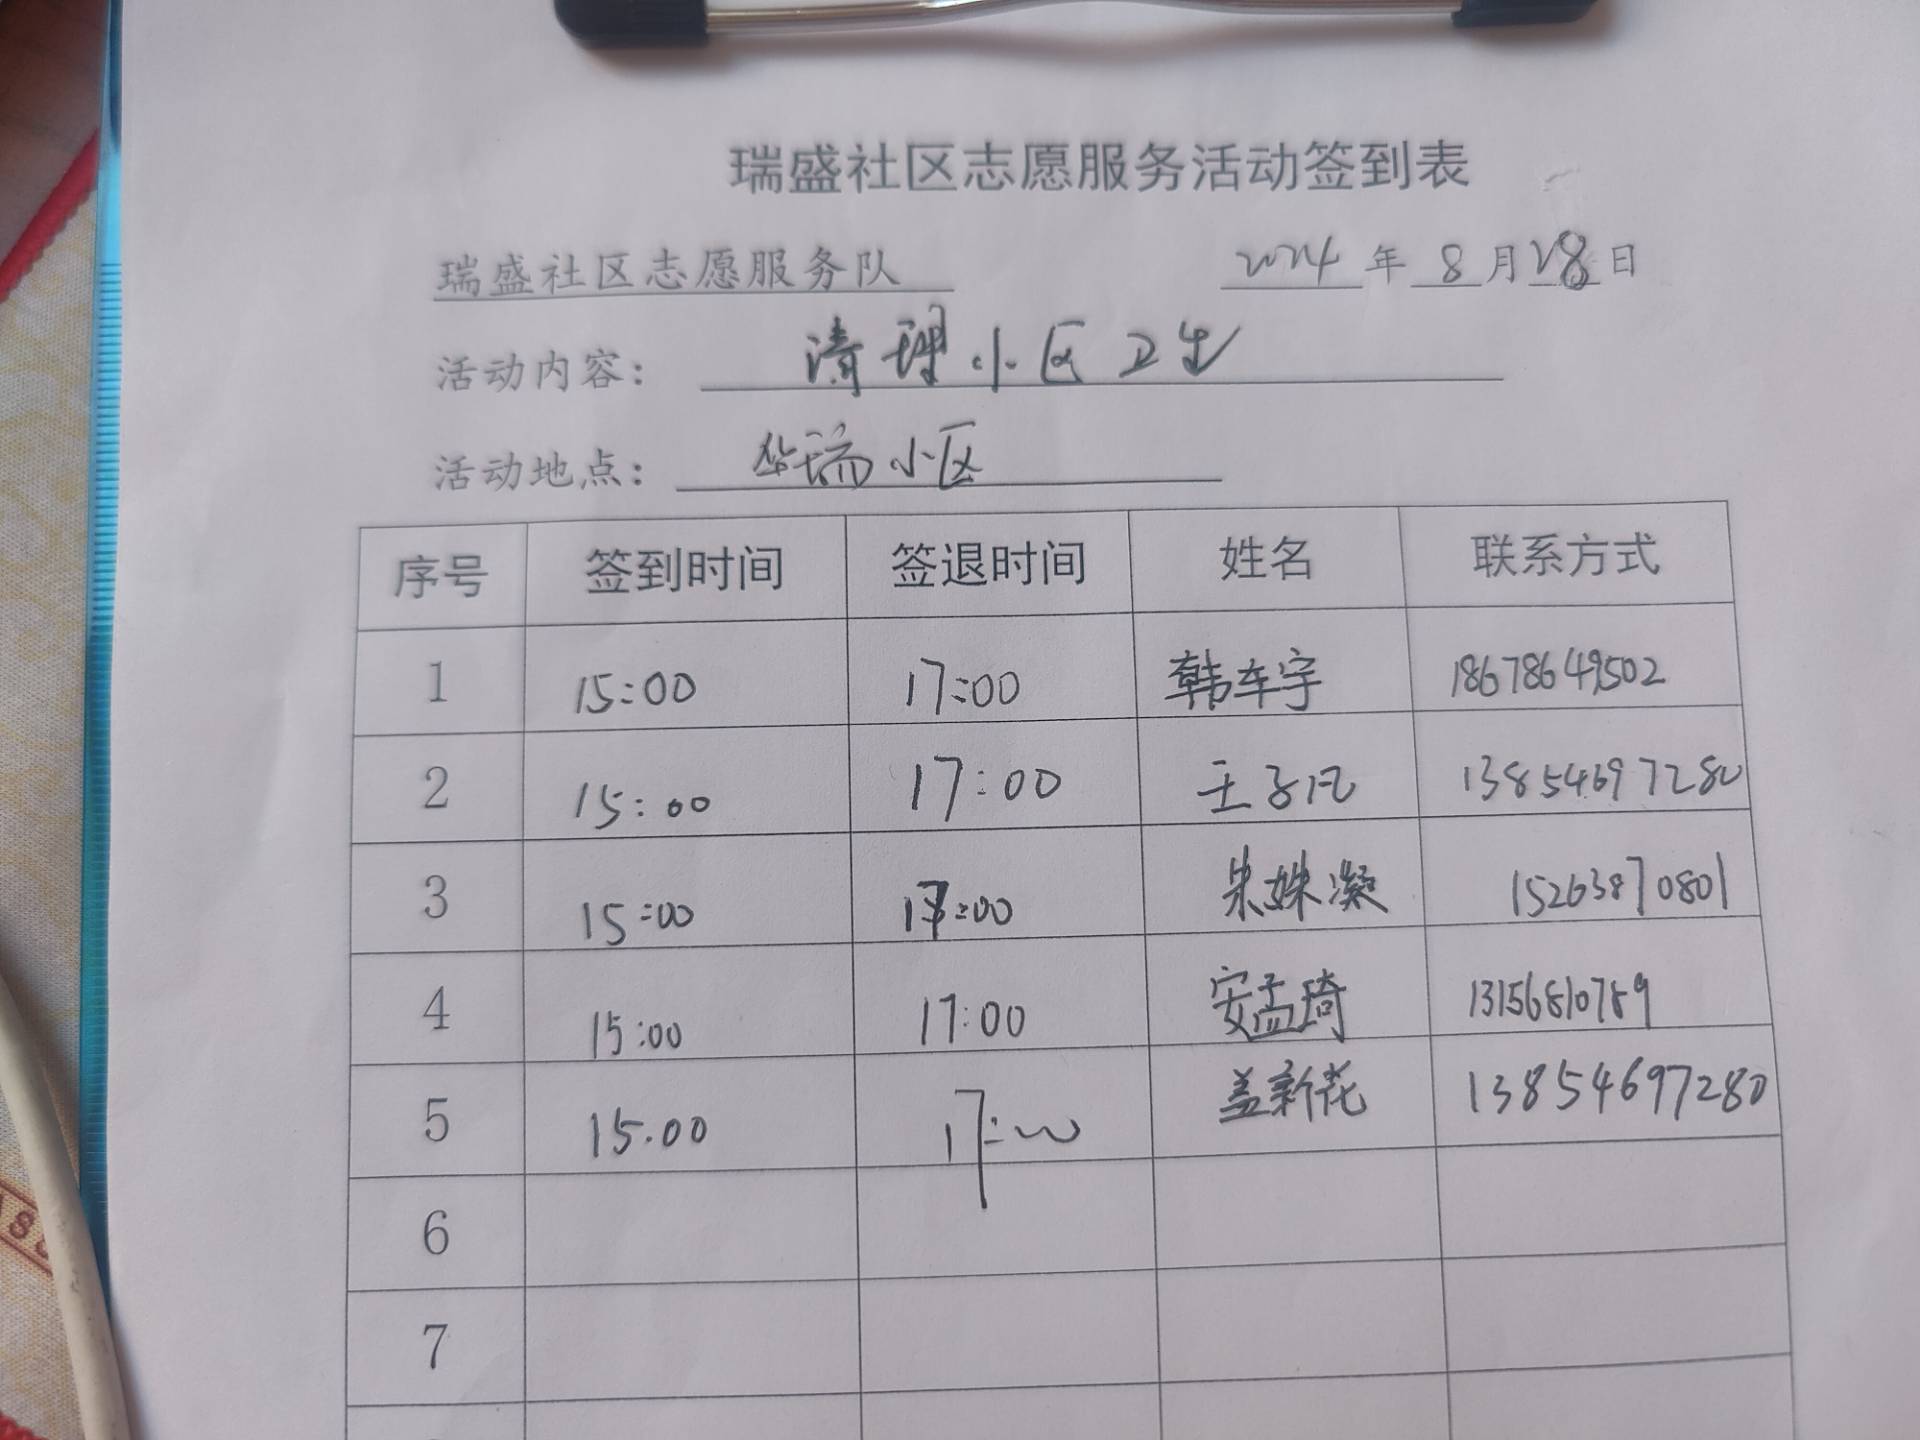 瑞盛社区志愿服务活动签到表
瑞盛社区志愿服务队 2024年8月28日
活动内容： 清理小区卫生
活动地点： 华瑞小区
序号 签到时间 签退时间 姓名 联系方式
1 15:00 17:00 韩车宇 18678649502
2 15:00 17:00 王子凡 13854697280
3 15:00 17:00 朱姝凝 15263870801
4 15:00 17:00 安孟琦 13156810789
5 15.00 17:00 盖新花 13854697280
6
7